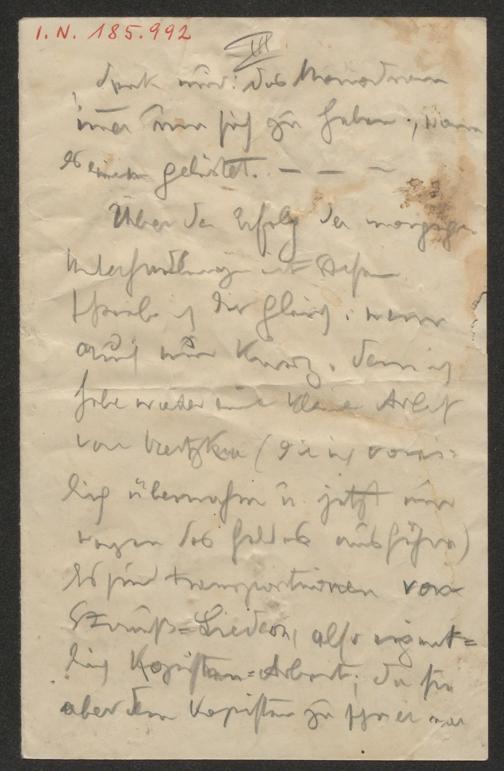 I. N. 185.992
III
immer um sich zu haben, wann
es einem gelüstet. — — —
Über den Erfolg der morgigen
Unterhandlungen mit
schreibe ich Dir gleich, wenn
auch nur kurz, denn ich
habe wieder eine kleine Arbeit
von (die ich
übernahm u. jetzt nur
wegen des Geldes ausführe)
Es sind Transpositionen von
Strauß=Liedern, also eigent=
lich Kopisten=Arbeit; da sie
aber dem Kopisten zu schwer